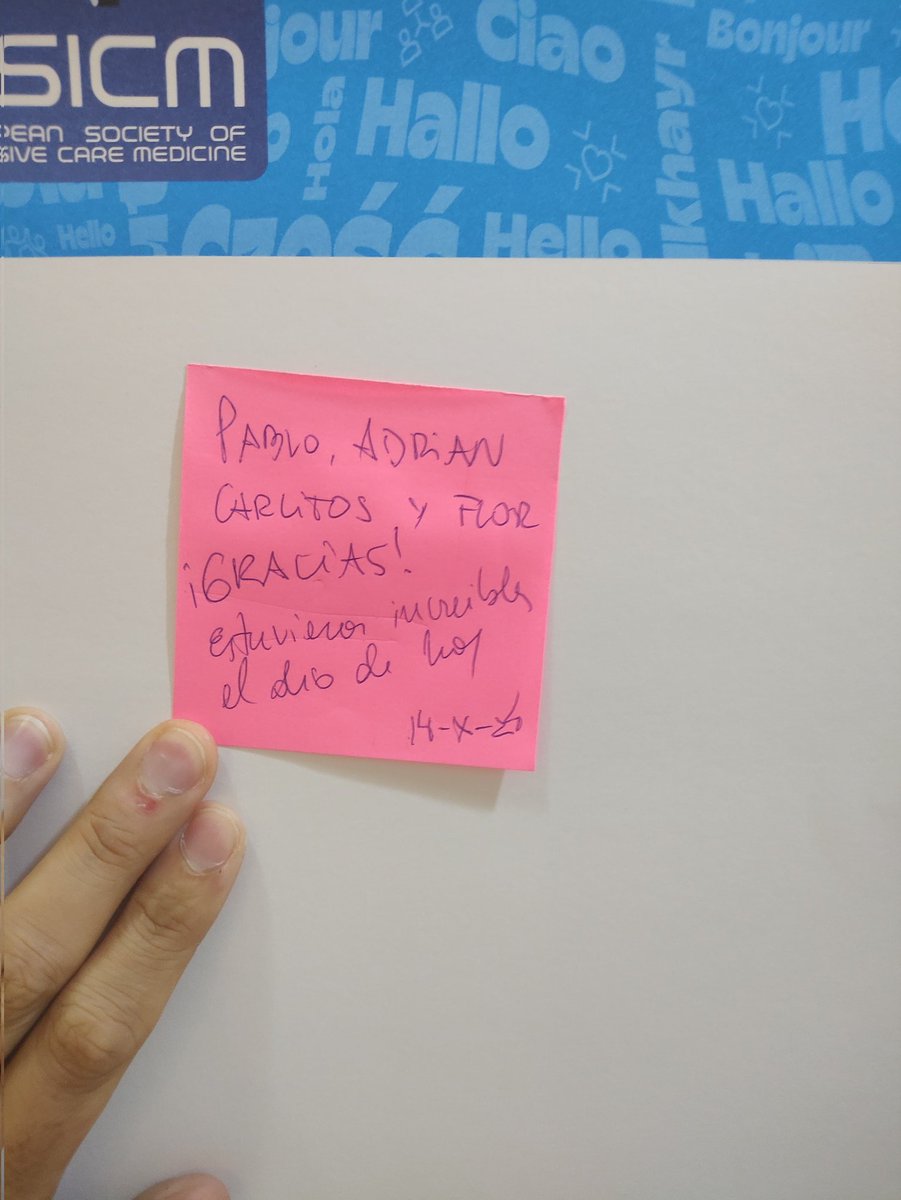 SICM
PEAN SOCIETY OF
SIVE CARE MEDICINE
jour
Ciao
Bonjour
Hola
Hallo
Khayr
Hallo
Hello
Cześć
Hello
PABLO, ADRIAN
CARLITOS Y FLOR
¡GRACIAS!
estuvieron increibles
el dia de hoy
14-X-